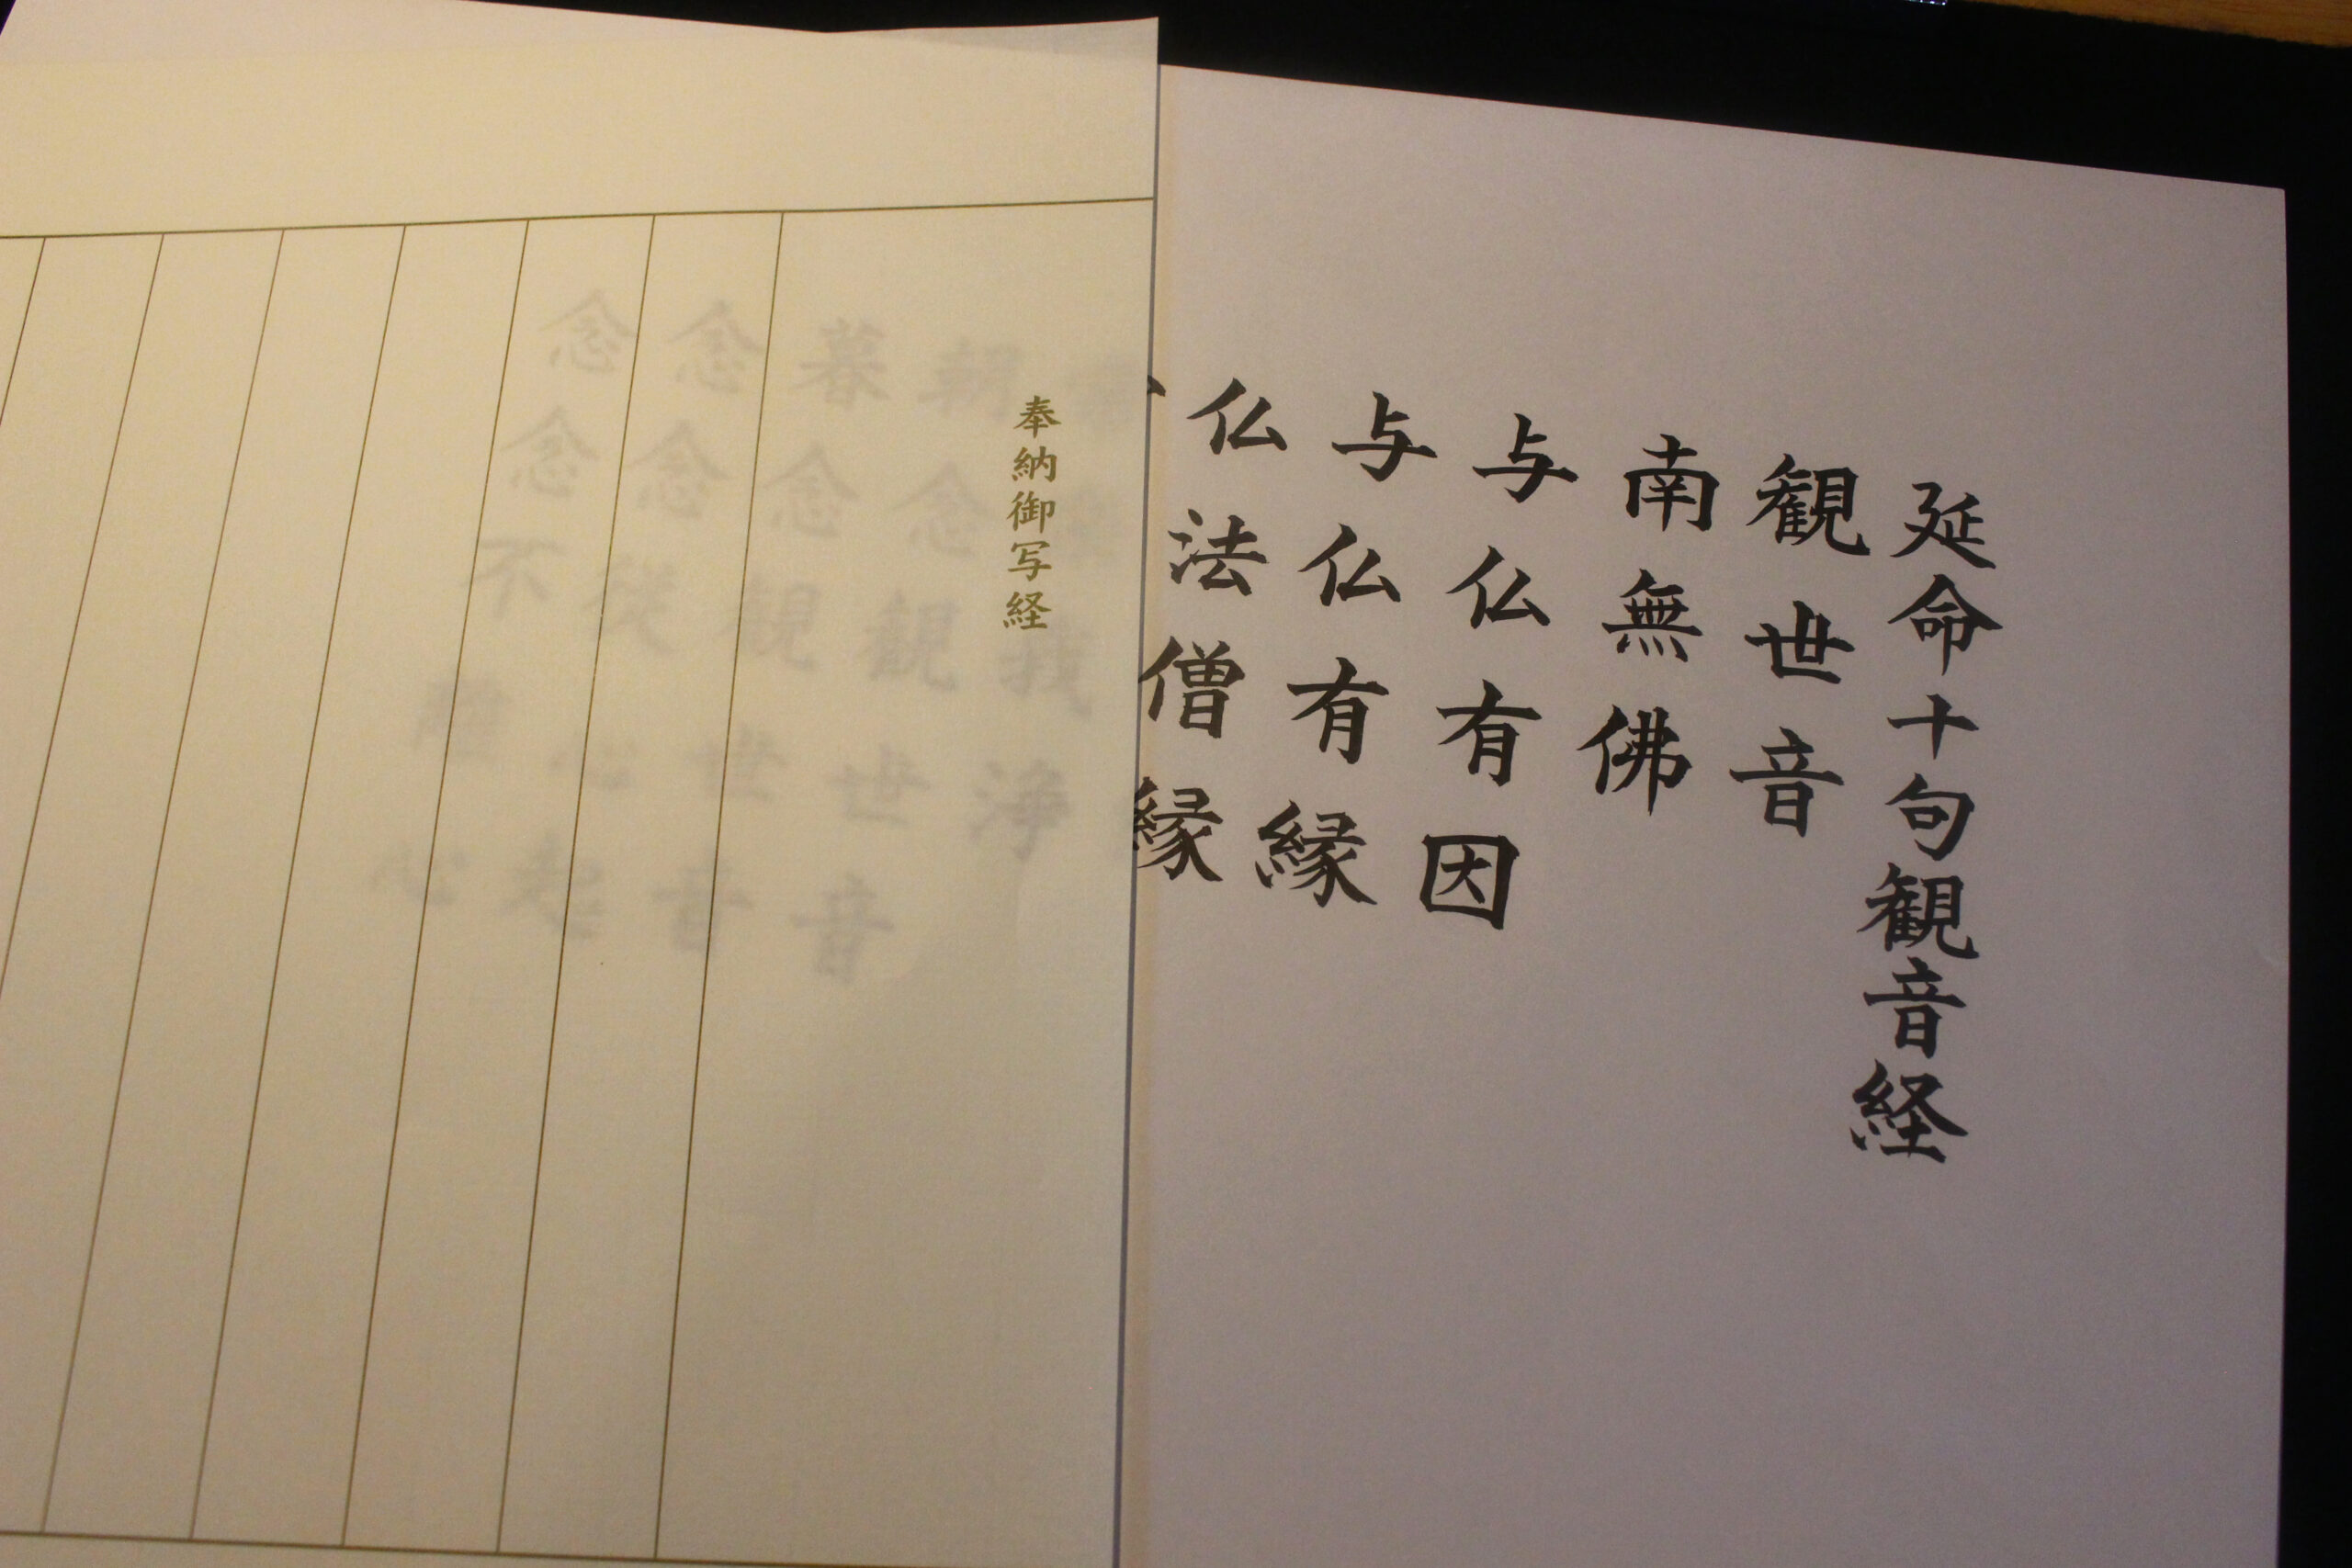 延命十句観音経
観世音
南無佛
与仏有因
与仏有縁
仏法僧縁
奉納御写経
我浄
朝念観世音
暮念観世音
念念従心起
念念不離心